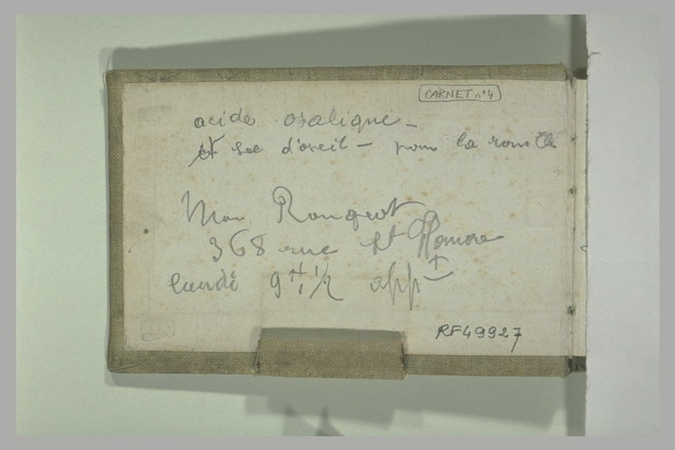 CARNET n°4
acide oxalique -
et sel d'oseil - pour la rouille
Mon Rouquet
368 rue St Honore
lundi 9 H 1/2 appt
RF49927